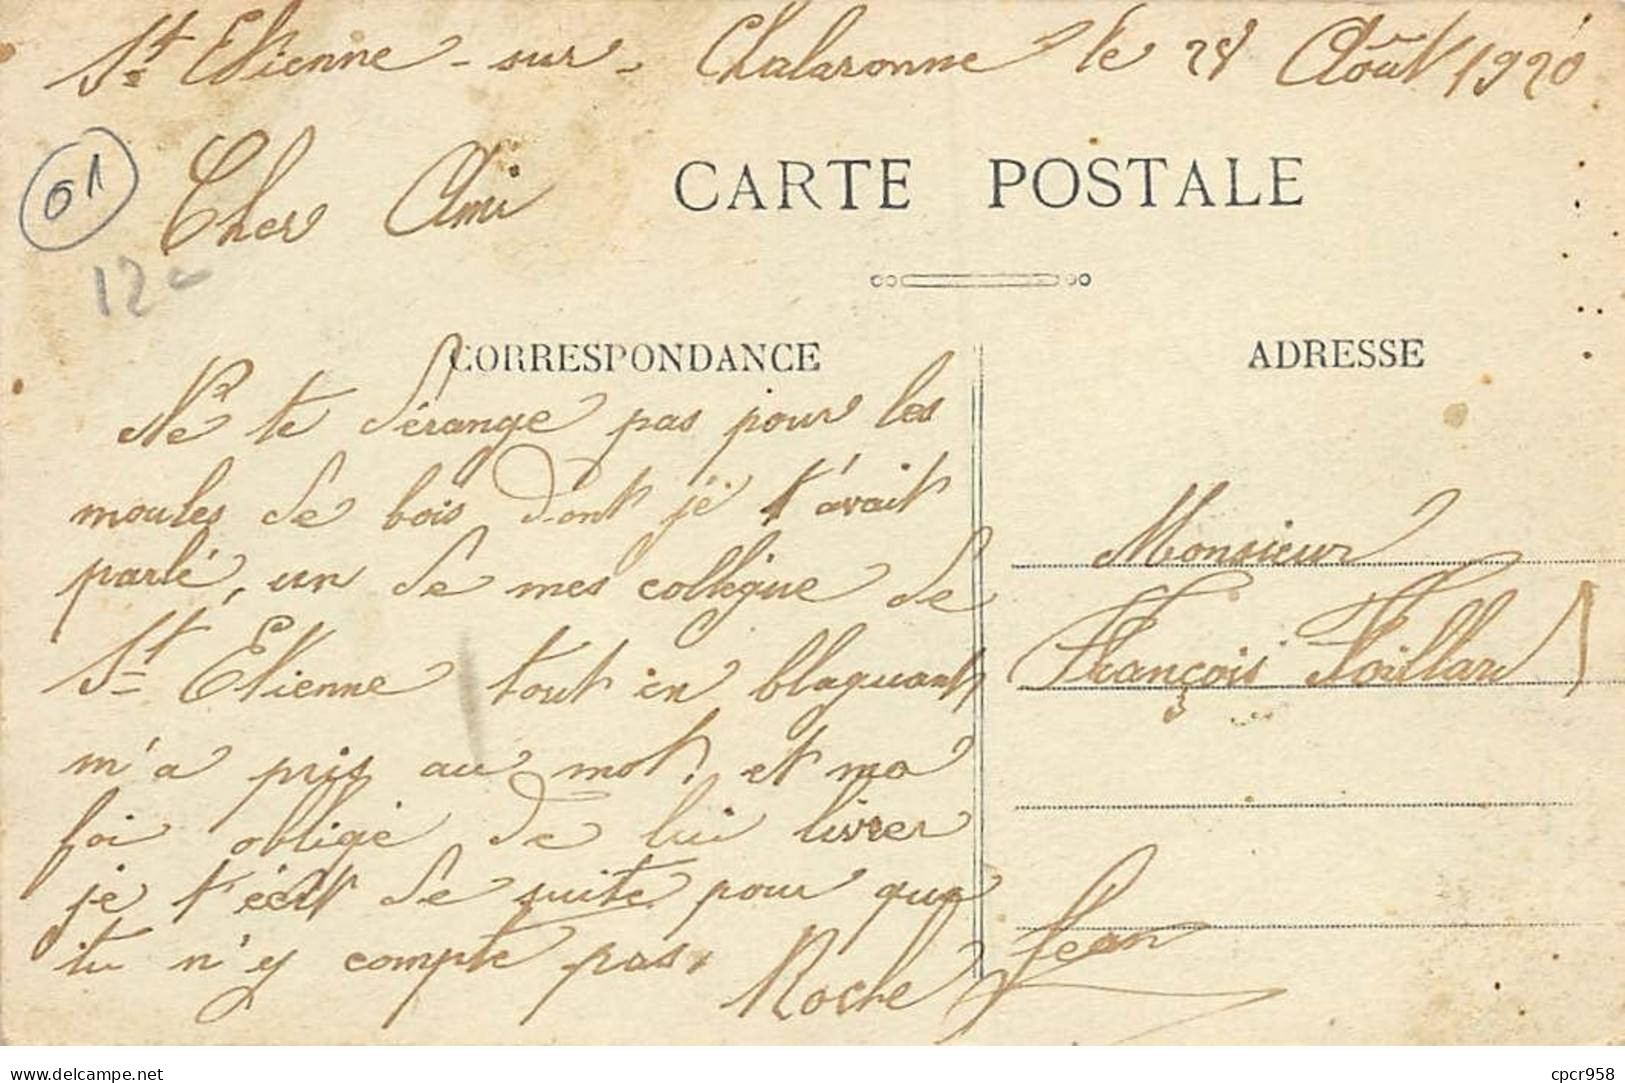 St Etienne - sur - Chalaronne le 28 Août 1920
01
Cher Ami
CARTE POSTALE
12
CORRESPONDANCE
ADRESSE
Ne te dérange pas pour les
moules de bois dont je t'avait
parlé, un de mes collègue de
St Etienne tout en blaguant
m'a pris au mot, et ma
foi obligé de lui livrer
je t'écrit de suite pour que
tu n'y compte pas.
Roche Jean
Monsieur
François
www.delcampe.net
cpcr958